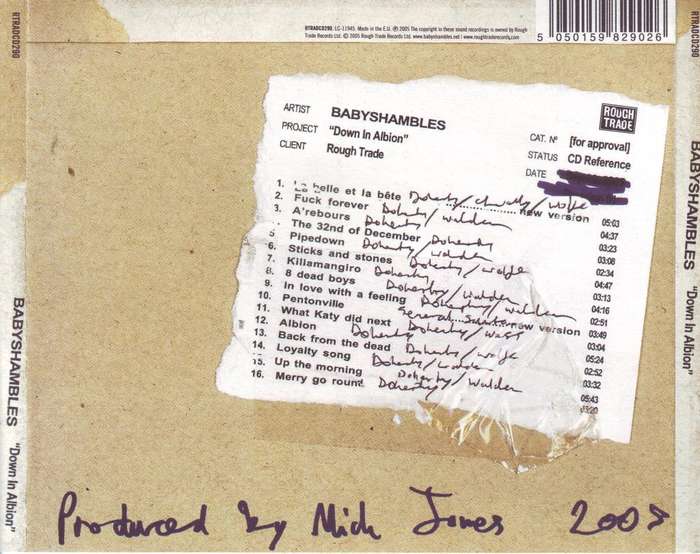 RTRADCD290
RTRADCD290. LC-11945. Made in the E.U. ℗ 2005 The copyright in these sound recordings is owned by Rough
Trade Records Ltd. © 2005 Rough Trade Records Ltd. www.babyshambles.net | www.roughtraderecords.com
5 050159 829026
RTRADCD290
ROUGH TRADE
ARTIST BABYSHAMBLES
PROJECT "Down In Albion"
CLIENT Rough Trade
CAT. Nº [for approval]
STATUS CD Reference
DATE
1. La belle et la bête Doherty/chevalley/wolfe 05:03
2. Fuck forever Doherty/walden new version 04:37
3. A'rebours Doherty 03:23
4. The 32nd of December Doherty 03:08
5 Pipedown Doherty/walden 02:34
6. Sticks and stones Doherty/wolfe 04:47
7. Killamangiro Doherty 03:13
8. 8 dead boys Doherty/walden 04:16
9. In love with a feeling Doherty/walden 02:51
10. Pentonville General new version 03:49
11. What Katy did next Doherty/wass 03:04
12. Albion Doherty 05:24
13. Back from the dead Doherty/wolfe 02:52
14. Loyalty song Doherty/walden 03:32
15. Up the morning Doherty/walden 05:43
16. Merry go round Doherty 03:20
BABYSHAMBLES "Down In Albion"
BABYSHAMBLES "Down In Albion"
Produced by Mick Jones 2005